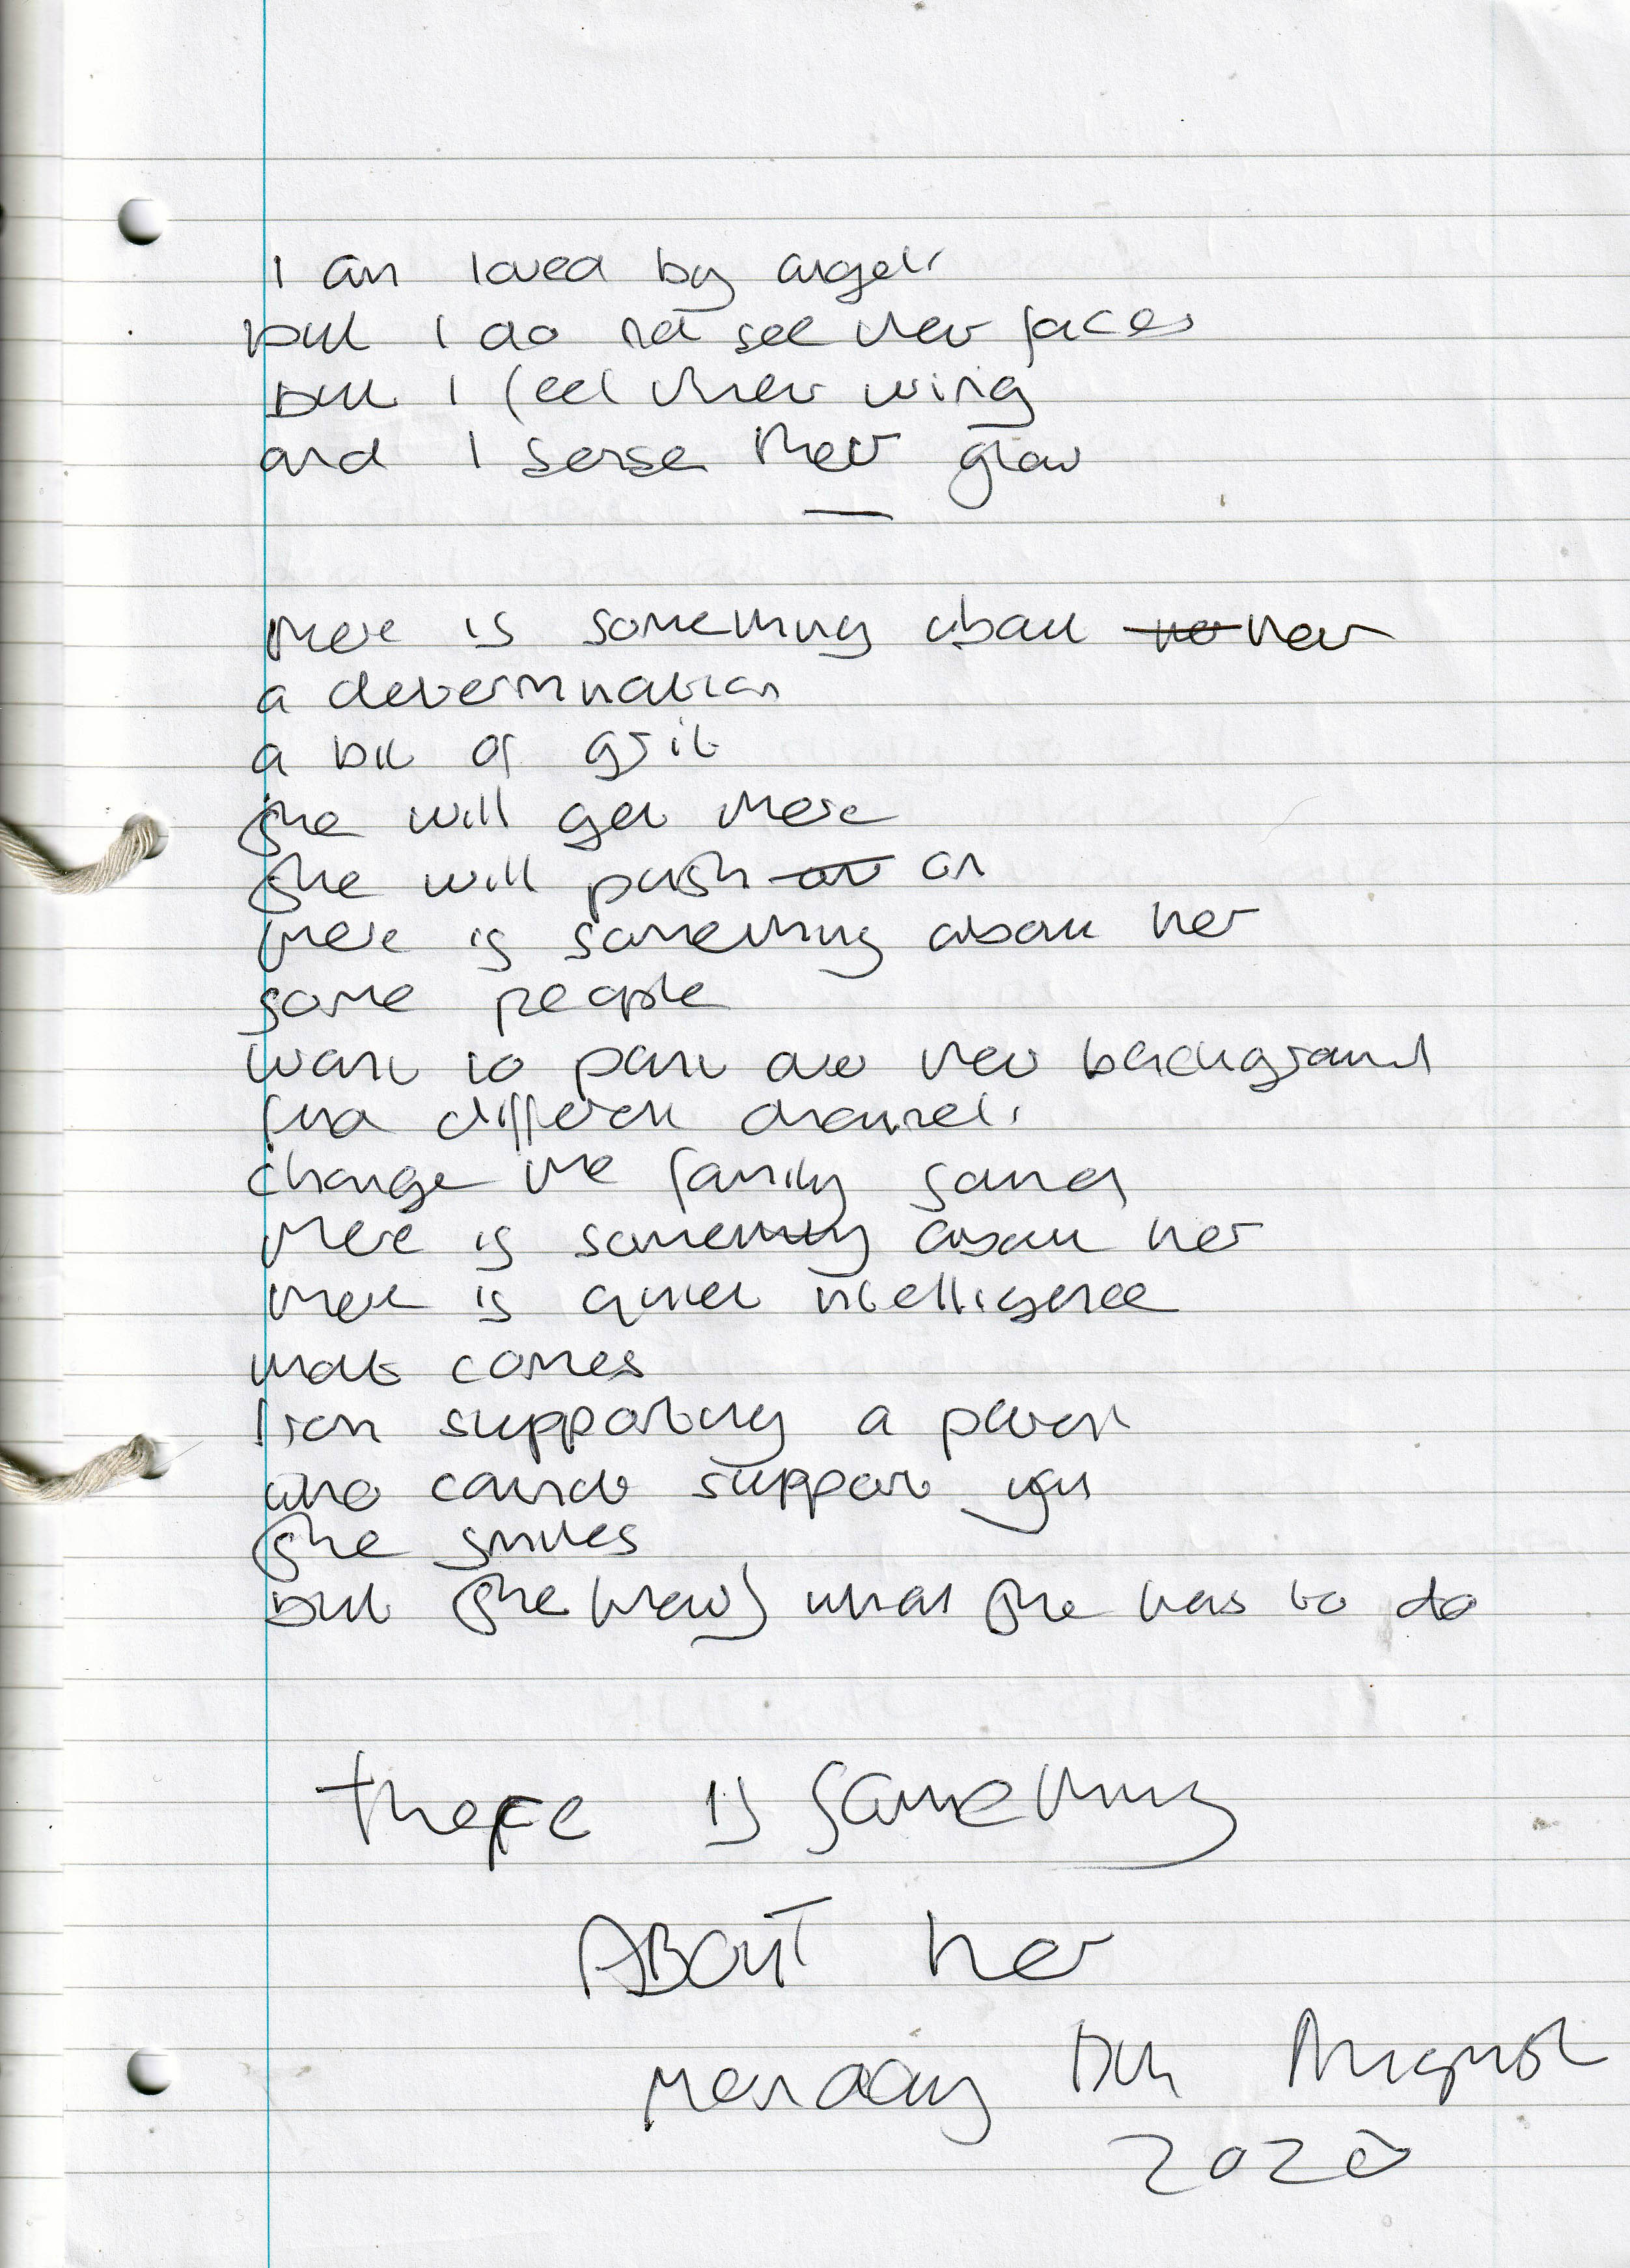 I am loved by angels
but I do not see their faces
but I feel their wing
and I sense their glow
there is something about her
a determination
a bit of grit
she will get there
she will push on
there is something about her
some people
want to paint over their background
find different channels
change the family
there is something about her
there is quiet intelligence
that comes
from supporting a parent
who cannot support you
she smiles
but she knows what she has to do
There is something
ABOUT her
Monday August
2020